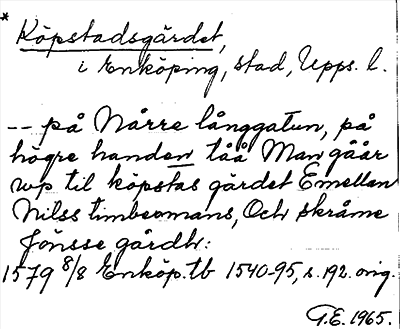 * Köpstadsgärdet,
i Enköping, stad, Upps. l.
-- på Nårre långgatun, på
högre handen tåå Man gåår
up til köpstas gärdet Emellan
Nilss timbermans, Och skråme
Jönsse gårdh:
1579 8/8 Enköp. tb 1540-95, s. 192. orig.
G.E. 1965.